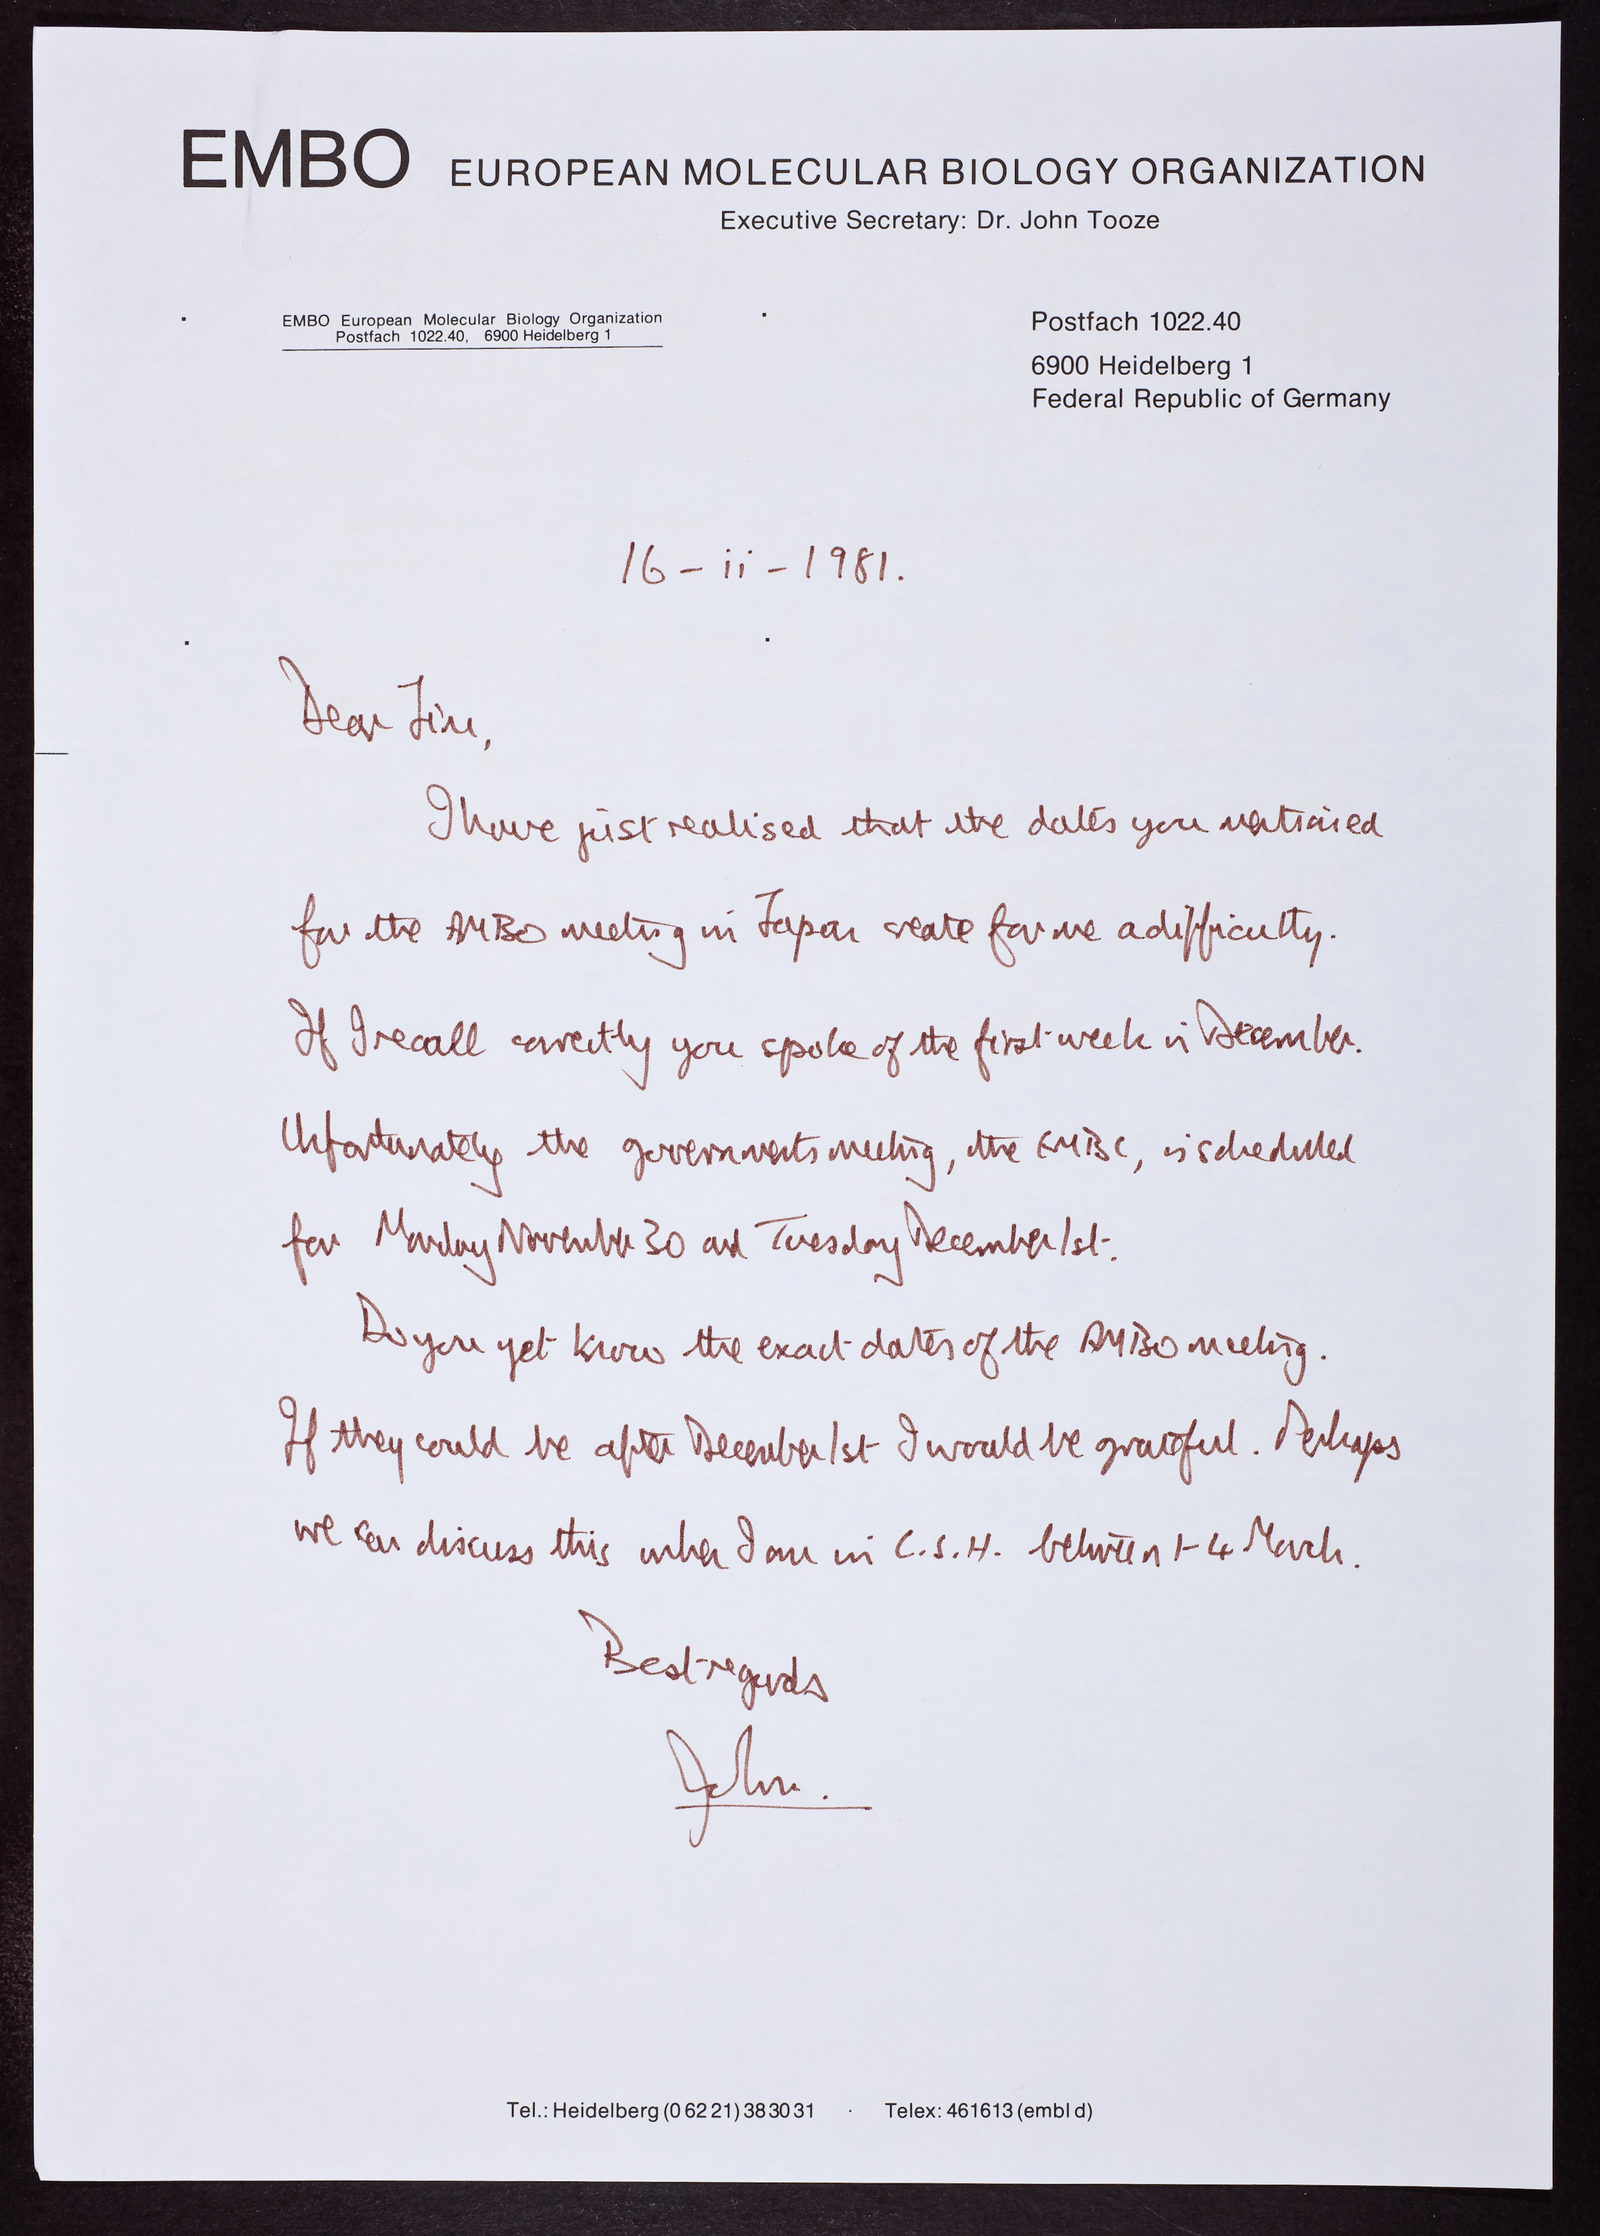 EMBO EUROPEAN MOLECULAR BIOLOGY ORGANIZATION
Executive Secretary: Dr. John Tooze
EMBO European Molecular Biology Organization
Postfach 1022.40, 6900 Heidelberg 1
Postfach 1022.40
6900 Heidelberg 1
Federal Republic of Germany
16 - ii - 1981.
Dear Jim,
I have just realised that the dates you mentioned
for the AMBO meeting in Japan create for me a difficulty.
If I recall correctly you spoke of the first week in December.
Unfortunately the governments meeting, the EMBC, is scheduled
for Monday November 30 and Tuesday December 1st.
Do you yet know the exact dates of the AMBO meeting.
If they could be after December 1st I would be grateful. Perhaps
we can discuss this when I am in C.S.H. between 1-4 March.
Best regards
John.
Tel.: Heidelberg (0 62 21) 38 30 31 · Telex: 461613 (embl d)